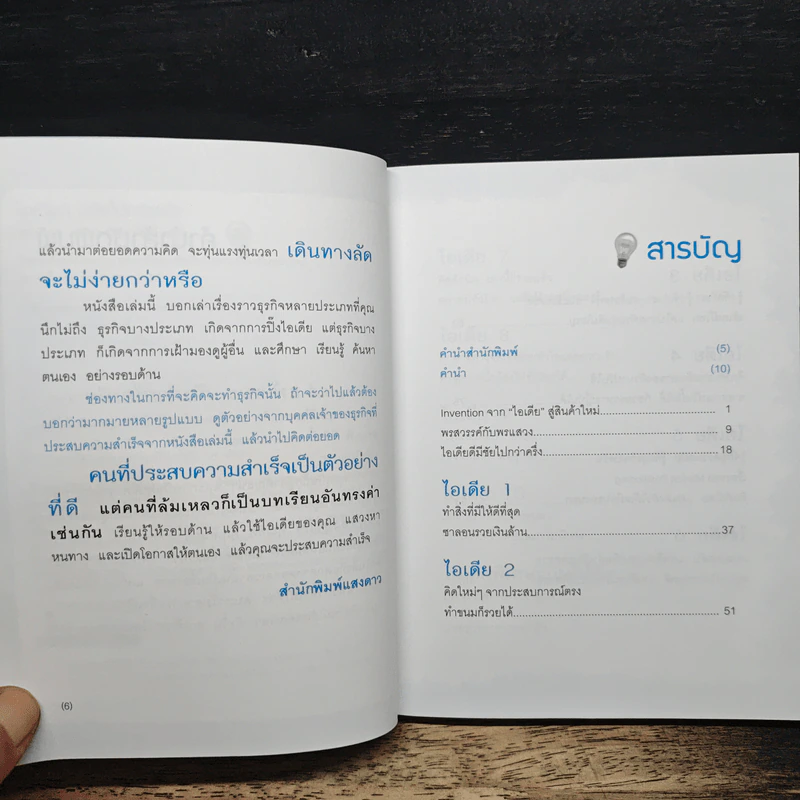 แล้วนำมาต่อยอดความคิด จะทุ่นแรงทุ่นเวลา เดินทางลัด
จะไม่ง่ายกว่าหรือ
หนังสือเล่มนี้ บอกเล่าเรื่องราวธุรกิจหลายประเภทที่คุณ
นึกไม่ถึง ธุรกิจบางประเภท เกิดจากการปิ๊งไอเดีย แต่ธุรกิจบาง
ประเภท ก็เกิดจากการเฝ้ามองดูผู้อื่น และศึกษา เรียนรู้ ค้นหา
ตนเอง อย่างรอบด้าน
ช่องทางในการที่จะคิดจะทำธุรกิจนั้น ถ้าจะว่าไปแล้วต้อง
บอกว่ามากมายหลายรูปแบบ ดูตัวอย่างจากบุคคลเจ้าของธุรกิจที่
ประสบความสำเร็จจากหนังสือเล่มนี้ แล้วนำไปคิดต่อยอด
คนที่ประสบความสำเร็จเป็นตัวอย่าง
ที่ดี แต่คนที่ล้มเหลวก็เป็นบทเรียนอันทรงค่า
เช่นกัน เรียนรู้ให้รอบด้าน แล้วใช้ไอเดียของคุณ แสวงหา
หนทาง และเปิดโอกาสให้ตนเอง แล้วคุณจะประสบความสำเร็จ
สำนักพิมพ์แสงดาว
(6)
สารบัญ
คำนำสำนักพิมพ์ (5)
คำนำ (10)
Invention จาก "ไอเดีย" สู่สินค้าใหม่.................................... 1
พรสวรรค์กับพรแสวง........................................................ 9
ไอเดียดีมีชัยไปกว่าครึ่ง.....................................................18
ไอเดีย 1
ทำสิ่งที่มีให้ดีที่สุด
ซาลอนรวยเงินล้าน..........................................................37
ไอเดีย 2
คิดใหม่ๆ จากประสบการณ์ตรง
ทำขนมก็รวยได้............................................................... 51